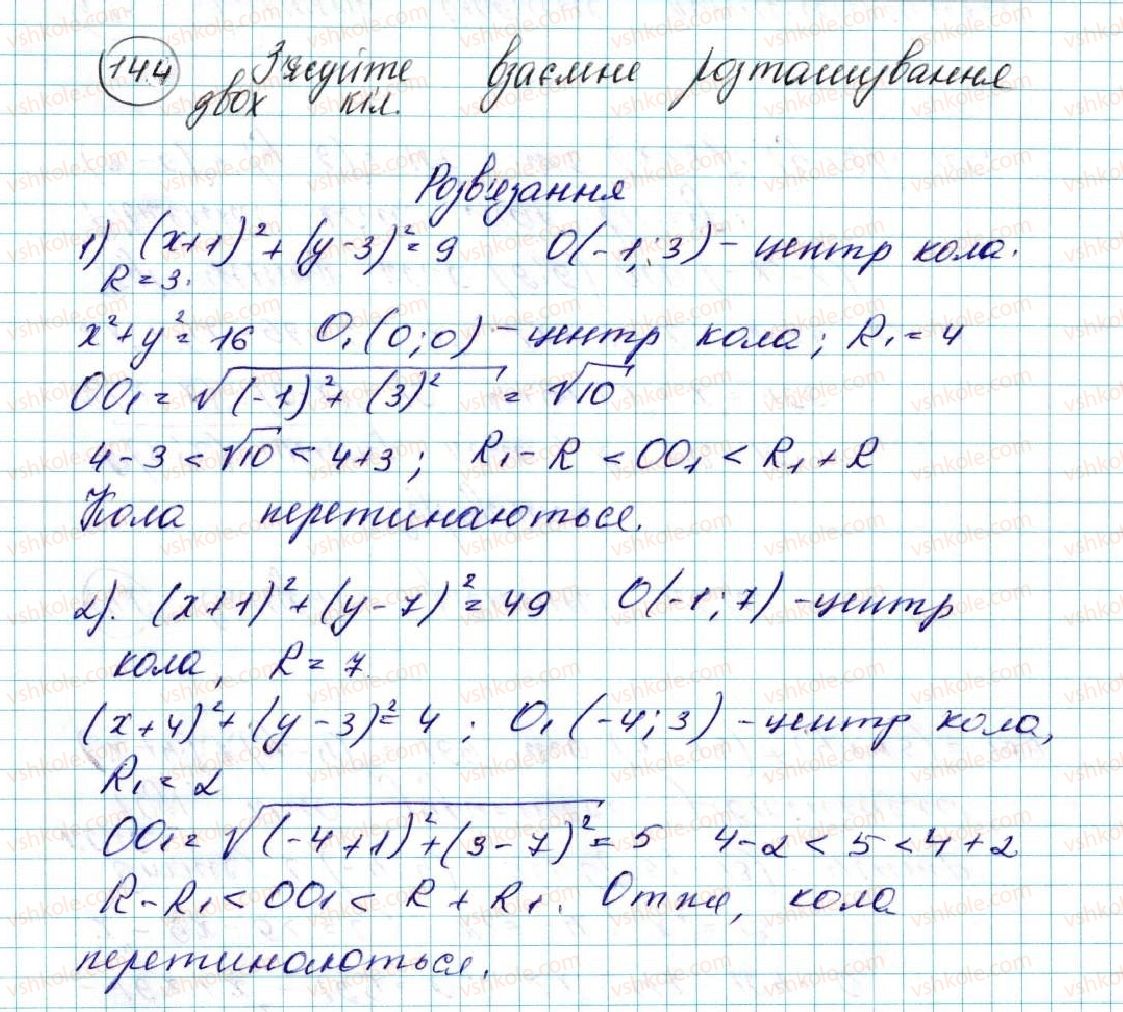 144 З'ясуйте взаємне розташування
двох кіл.
Розв'язання
1) (x+1)² + (y-3)² = 9 O(-1; 3) - центр кола.
R = 3.
x² + y² = 16 O₁(0; 0) - центр кола; R₁ = 4
OO₁ = √((-1)² + (3)²) = √10
4 - 3 < √10 < 4 + 3; R₁ - R < OO₁ < R₁ + R
Кола перетинаються.
2). (x+1)² + (y-7)² = 49 O(-1; 7) - центр
кола, R = 7.
(x+4)² + (y-3)² = 4; O₁(-4; 3) - центр кола,
R₁ = 2
OO₁ = √((-4+1)² + (3-7)²) = 5 4-2 < 5 < 4+2
R - R₁ < OO₁ < R + R₁. Отже, кола
перетинаються.